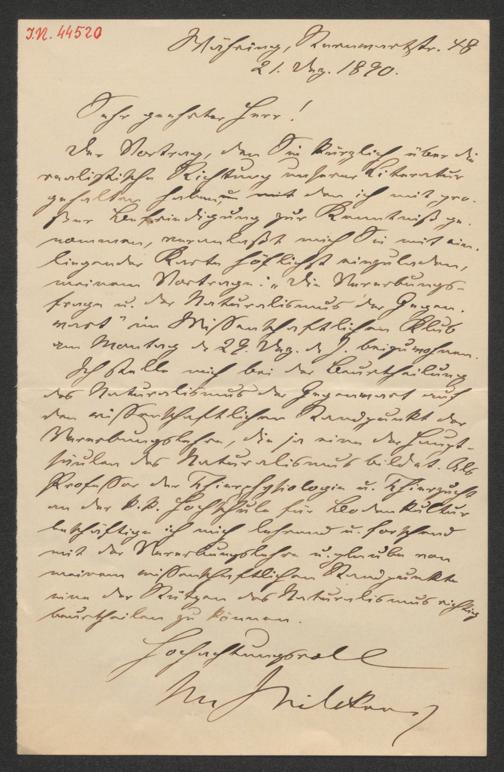 I.N. 44520
Währing, Karl Ludwigstr. 48
21. Dez. 1890.
Sehr geehrter Herr!
Der Vortrag, den Sie kürzlich über die
realistische Richtung unserer Literatur
gehalten haben, u. mit dem ich mit gro-
ßer Befriedigung zur Kenntniß ge-
nommen, veranlaßt mich Sie mit ein-
liegender Karte höflichst einzuladen,
meinem Vortrage: „Die Vererbungs-
frage u. der Naturalismus der Gegen-
wart" im Wissenschaftlichen Klub
am Montag d. 29. Dez. d. J. beizuwohnen.
Ich stelle mich bei der Beurtheilung
des Naturalismus der Gegenwart auf
den wissenschaftlichen Standpunkt der
Vererbungslehre, die ja eine der Haupt-
säulen des Naturalismus bildet. Als
Professor der Thierphysiologie u. Thierzucht
an der k.k. Hochschule für Bodenkultur
beschäftige ich mich lehrend u. forschend
mit der Vererbungslehre u. glaube von
meinem wissenschaftlichen Standpunkte
eine der Stützen des Naturalismus richtig
beurtheilen zu können.
Hochachtungsvoll
M. Wilckens